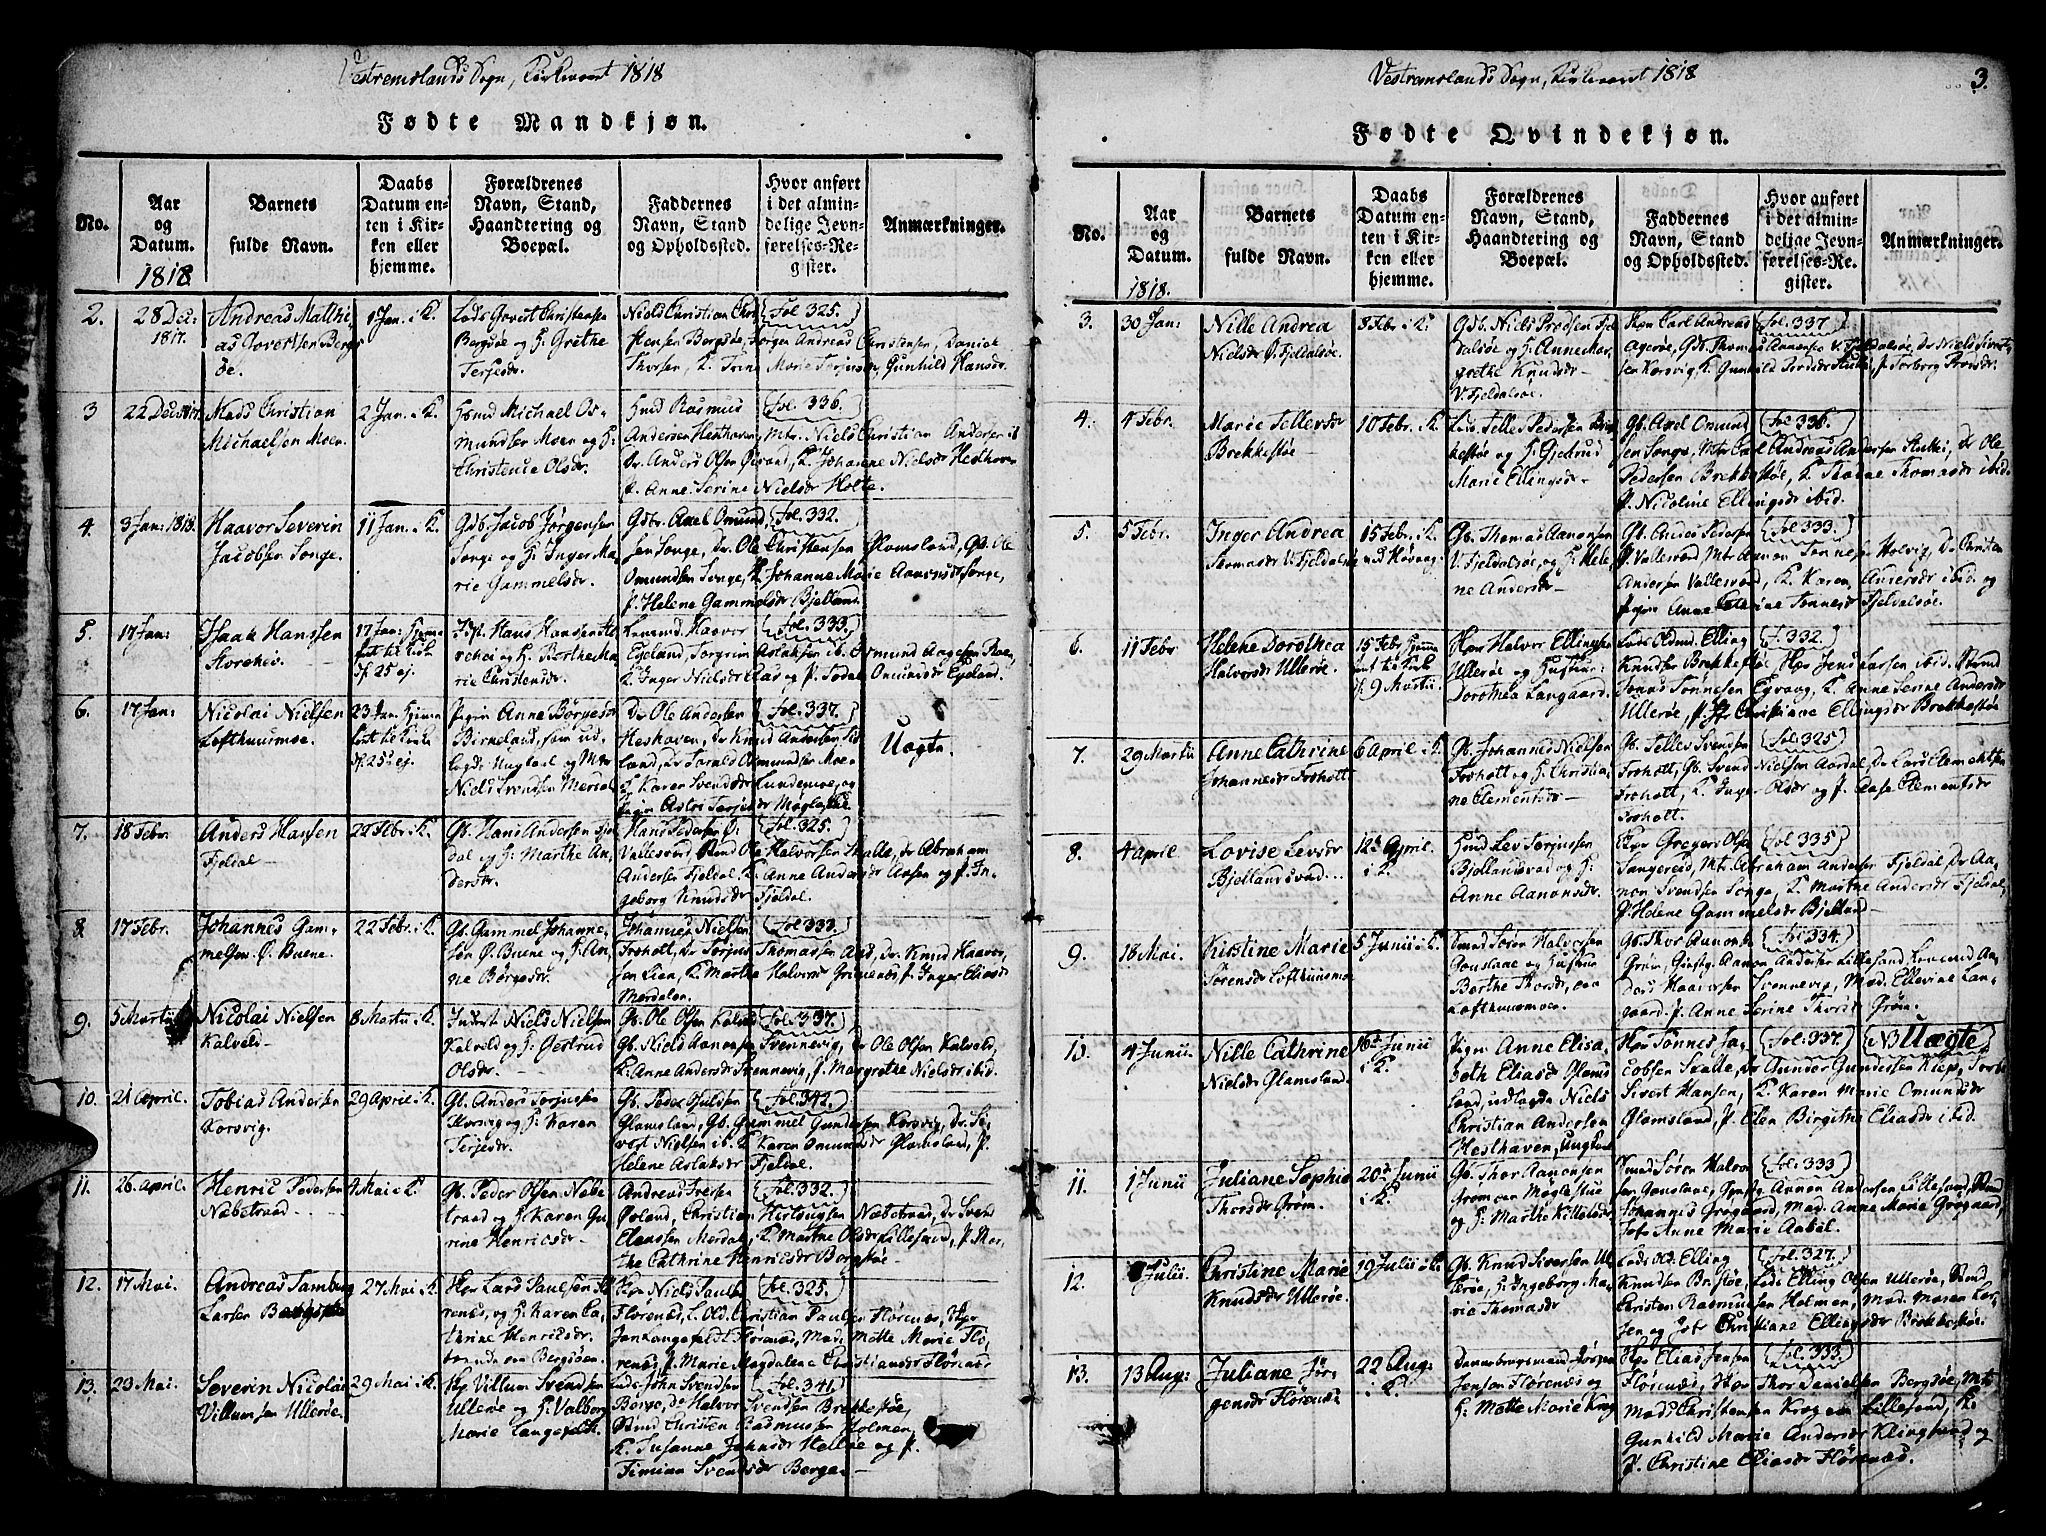 Vestremolands Sogn, Kirkeaaret 1818
Fødte Mandkjøn.
No.
Aar
og
Datum.
1818
Barnets
fulde Navn.
Daabs
Datum en-
ten i Kir-
ken eller
hjemme.
Forældrenes
Navn, Stand,
Haandtering og
Boepæl.
Faddernes
Navn, Stand
og Opholdssted.
Hvor anført
i det almin-
delige Jevn-
førelses-Re-
gister.
Anmærkninger.
2.
28 Dec:
1817.
Andreas Matthi-
as Govertsen Bergs
öe.
1 Jan. i K.
Lods Govert Christensen
Bergsöe og H. Grethe
Terjesdr.
Niels Christian Chri
stensen Bergsöe, Jörgen Andreas Christensen, Daniel
Thorsen, K. Trine Marie Terjusen, Gunhild Hansdr.
Fol 325.
3
22 Dec 1817.
Mads Christian
Michaelsen Moen
2 Jan. i K.
Hmd Michael Os-
mundsen Moen og H.
Christense Olsdr.
Hmd Rasmus
Andersen Hesthaven, Mtr. Niels Christian Andersen ib
Dr. Anders Olsen Öivand, K. Johanne Nielsdr Hesthaven
P. Anne Serine Nielsdr Holte.
fol. 336.
4.
3 Jan: 1818.
Haavor Severin
Jacobsen Songe.
11 Jan. i K.
Gdb. Jacob Jörgensen
Songe og H. Inger Ma-
rie Gammelsdr.
Gdbr. Axel Omund
sen Songe, Dr. Ole Christensen Glamsland, Gb. Ole
Omundsen Songe, K. Johanne Marie Aanensdr Songe,
P. Helene Gammelsdr Bjelland.
Fol. 332.
5.
17 Jan:
Isaak Hanssen
Storehei.
17 Jan: hjem
fest til Kirk
d. 25 ej.
Hans Hansen St
orehei og H. Berthe Ma-
rie Christensdr.
Haavor
Egeland, Torgrim Aslaksen ib. Osmund Aagesen Roe,
K. Inger Nielsdr Aas og P. Todal Omundsdr Egeland.
Fol. 333.
6.
17 Jan:
Nicolai Nielsen
Lofthuusmoe.
23 Jan. hjemme
fest til Kirke
d. 25 ej.
Pigen Anne Börgesdr
Birkeland, som ud
lagde Ungkarl og Mtr.
Niels Svendsen Merdal
Dr Ole Andersen
Heshaven, Dr Knud Andersen
land, Dr Torald Osmundsen Moe
K. Karen Svendsdr Lundemoe, og
Pigen Astri Terjusdr Möglestue.
Fol. 337.
Uægte
7.
18 Febr.
Anders Hansen
Fjeldal
22 Febr. i K.
Gb. Hans Andersen Fjel
dal og H: Marthe An-
dersdr.
Hans Pedersen Ö.
Vallesund, Ole Halvorsen Skalle, Dr Abraham
Andersen Fjeldal, K. Anne Andersdr Aasen og P. In-
geborg Knudsdr Fjeldal.
Fol. 325.
8
17 Febr.
Johannes Gam-
melsen Ö. Buene.
22 Febr. i K.
Gb. Gammel Johanne-
sen Ö. Buene og H. An-
ne Börgesdr.
Johannes Nielsen
Froholt, Dr Terjus Thomassen Aas, Dr. Knud Haavor-
sen Lien, K. Marthe Halvorsdr Grimenæs, P. Inger Eliasdr
Merdalen.
Fol. 333.
9.
5 Martii
Nicolai Nielsen
Kalveld
8 Martii i K.
Inderst Niels Nielsen
Kalveld og H. Gertrud
Olsdr.
Gb. Ole Olsen Kalveld
Gb. Niels Aanonsen Svennevig, Dr Ole Olsen Kalveld,
K. Anne Andersdr Svennevig, P. Margrethe Nielsdr ibid.
Fol. 337.
10.
21 April.
Tobias Andersen
Korsvig.
29 April i K.
Gb. Anders Terjusen
Korsvig og H. Karen
Terjesdr.
Gb. Peder
Glamsland, Gb. Gammel Gundersen Korsvig, Dr. Si-
vert Nielsen ib. K. Karen Omundsdr Glamsland, P.
Helene Aslaksdr Fjeldal.
Fol. 342.
11.
26 April.
Henric Pedersen
Næbstraad
4 Mai i K.
Gb. Peder Olsen Næb-
straad og H. Karen Ca-
trine Henricsdr.
Andreas Iversen
Öviland, Christian Hertzugsen Næbstraad, Dr Svend
Elenssen Merdal, K. Marthe Olsdr Lillesand, P. Mar-
the Cathrine Henricsdr Bergsöe.
Fol. 332.
12.
17 Mai.
Andreas Tamburg
Larsen Bergsöe
27 Mai i K.
Hpr Lars Paulsen Flö
renæs, og H. Karen Ca-
thrine Henricsdr.
boende paa Bergsöen.
Hpr Niels Paulsen
Florenæs, L. Old. Christian Paulsen Florenæs, Hpr
Jan Langefeldt Florenæs, Mad. Mette Marie Flö-
renæs, P. Marie Magdalene Christiansdr Flörenæs
Fol. 325.
13.
23 Mai.
Severin Nicolai
Villumsen Ulleröe.
29 Mai i K.
Hpr Villum Svendsen
Ulleröe og H. Valborg
Marie Langefeldt.
Lods John Svendsen
Borge, Dr Halvor Svendsen Brekkestöe,
Christen Rasmussen Holmen,
K. Susanne Johnsdr Helløe og P.
Timian Svendsdr Borge.
Fol. 341.
Vestremolands Sogn, Kirkeaaret 1818
3.
Fødte Qvindekjøn.
No.
Aar
og
Datum.
1818.
Barnets
fulde Navn.
Daabs
Datum en-
ten i Kir-
ken eller
hjemme.
Forældrenes
Navn, Stand,
Haandtering og
Boepæl.
Faddernes
Navn, Stand
og Opholdssted.
Hvor anført
i det almin-
delige Jevn-
førelses-Re-
gister.
Anmærkninger.
3.
30 Jan:
Nille Andrea
Nielsdr V. Fjeldalsöe.
8 Febr i K.
Gdb. Niels Predsen Fjel
dalsöe og H. Anne Mar
grethe Knudsdr
V. Fjeldalsöe.
Carl Andreas
Ageröe, Gdb. Thomas Aanonsen V. Fjeldalsöe, Dr Niels Sivert-
sen Korsvig, K. Gunhild P. Torborg Predsdr.
fol. 337
4.
4 Febr.
Marie Tellevsdr
Brekkestöe
10 Febr. i K.
Tellev Pedersen Brek
kestöe og H. Gjertrud
Marie Ellingsdr
Gb. Axel Omund
sen Songe, Mtr Carl Andreas Andersen Dr Ole
Pedersen Brekkestöe, K. Thomasdr ibid.
P. Nicoline Ellingsdr ibid.
Fol 336.
5.
5 Febr.
Inger Andrea
Thomasdr V. Fjeldalsöe
15 Febr. i K.
ved Høvaag
Gb. Thomas Aanonsen
V. Fjeldalsöe, og H. Hele
ne Andersdr
Gb. Anders Pedersen
Ö. Vallesund Mtr Aanon Tönnesen Holvig, Dr Christen
Andersen Vallesund, K. Karen Andersdr ibid. og
Pigen Anne Catrine Tönnesdr Fjeldalsöe.
Fol. 333.
6.
11 Febr.
Helene Dorothea
Halvorsdr Ulleröe.
15 Febr hjemme
fest til Kirk
d. 9 Martii.
Hpr Halvor Ellingsen
Ulleröe og Hustrue:
Dorothea Langaard.
Lods Oldmd. Elling
Knudsen Brekkestöe Hpr Jens Larsen ibid.
Jonas Tönnesen Egvaag, K. Anne Serine Andersdr
Ulleröe, P. Christiane Ellingsdr Brekkestöe
F. 332.
7.
29 Martii
Anne Cathrine
Johannesdr Froholt
6 April i K.
Gb. Johannes Nielsen
Froholt og H. Christia-
ne Clementsdr
Gb. Tellev Svendsen
Froholt, Gb. Svend Nielsen Aardal, Dr Lars Clementsen
Froholt, K. Inger Olsdr og P. Aase Clementsdr
Froholt.
Fol. 325
8.
4 April
Lovise Levsdr
Bjellandsvand
12te April.
i K.
Hmd Lev Terjusen
Bjellandsvand og H.
Anne Aanonsdr.
Hpr Gregers Olsen
Tangereid, Mt. Abraham Andersen Fjeldal, Dr Aa-
non Svendsen Songe, K. Marthe Andersdr Fjeldal,
P. Helene Gammelsdr Bjelland
Fol 335
9.
18 Mai.
Kirstine Marie
Sörensdr Lofthuusmoe
5 Junii i K.
Smed Sören Halvorsen
Goustane og Hustrue
Berthe Thorsdr, paa
Lofthuusmoe.
Gb. Thor Aanonsen
Gröm, Aanon Andersen Lillesand, An-
ders Haavorsen Svennevig, Mad. Ellevine Lan-
gaard, P. Anne Serine Thorsdr Gröm.
Fol 334.
10.
4 Junii
Nille Cathrine
Nielsdr Glamsland.
16de Junii
i K.
Pigen Anne Elisa
beth Eliasdr Glams
land, udlagde Niels
Christian Andersen
Hesthaven, Ungkarl
Hpr Tönnes Ja-
cobsen Skalle, Dr Gunder Gundersen Kiep,
Sivert Hansen, K. Karen Marie Omundsdr
Glamsland, P. Elen Birgithe Eliasdr ibid.
Fol: 337.
NB Uægte
11.
1 Junii
Juliane Sophie
Thorsdr Gröm.
20de Junii
i K.
Gb. Thor Aanonsen
Gröm paa Möglestue
og H: Marthe Killelsdr
Smed Sören Halvor
sen Goustane, Aanon Andersen Lillesand,
Johannes Grögaard, Mad. Anne Marie Grögaard,
Jfr. Anne Marie Aabel.
Fol: 333
12.
Julii.
Christine Marie
Knudsdr Ulleröe.
19 Julii i K.
Gb. Knud Iversen Ul-
leröe, H. Ingeborg Ma-
rie Thomasdr
Lods Old. Elling
Knudsen Brestöe, Lods Elling Olsen Ulleröe,
Christen Rasmussen Holmen, Mad. Maren Lar-
sen og Jfr Christiane Ellingsdr Brekkestöe.
Fol. 327.
13.
13 Aug:
Juliane Jör-
gensdr Flörenæs
22 Aug:
i K.
Dannebrogsmand Jörgen
Jensen Flörenæs og
H: Mette Marie Krog
Hpr Elias Jensen
Flörenæs, Hpr Thor Danielsen Bergsöe, Mt.
Mads Christensen Krog paa Lillesand, K.
Gunhild Marie Andersdr Klingsund og
P. Christine Eliasdr Flörenæs.
Fol. 333.